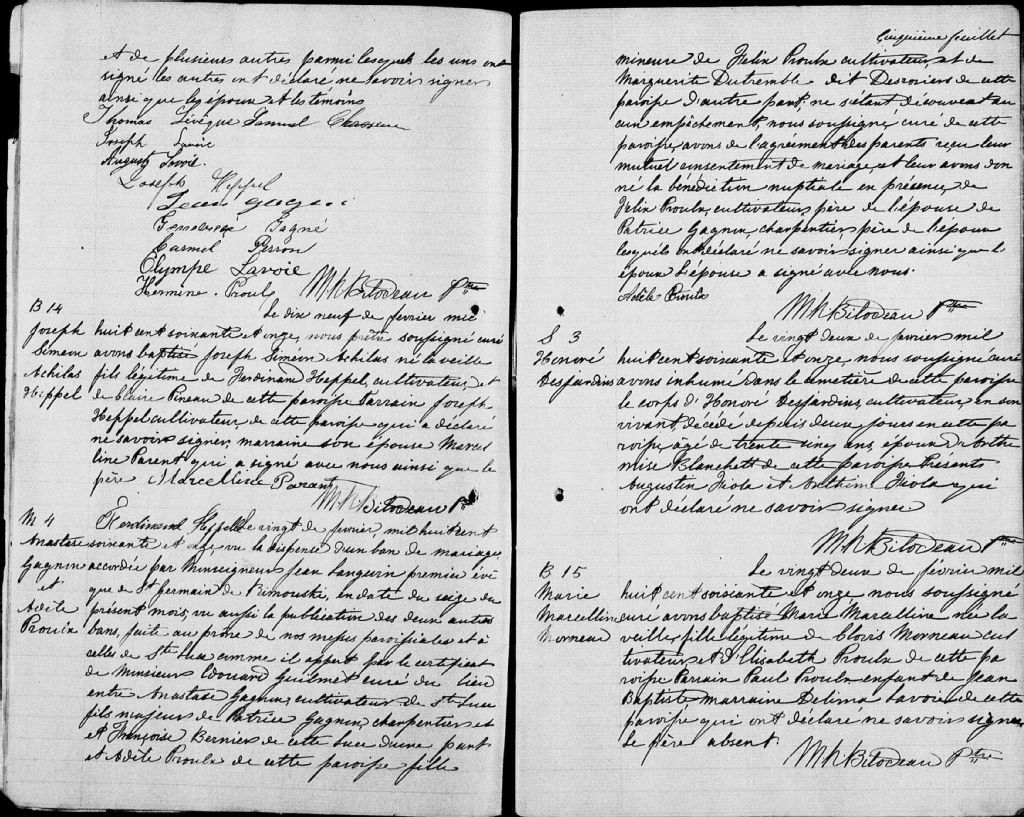 et de plusieurs autres parmi lesquels les uns ont
signé les autres ont déclaré ne savoir signer
ainsi que les époux et les témoins
Thomas Lévêque Samuel Chasseur
Joseph Lavoie
August Lavoie.
Joseph Heppel
Gagné
Carmel Perron
Olympe Lavoie
Hermine Proulx M N Bilodeau Ptre
B 14
Joseph
Simeon
Achilas
Heppel
Le dix neuf de février mil
huit cent soixante et onze, nous prêtre soussigné curé
avons baptisé Joseph Simeon Achilas né la veille
fils légitime de Ferdinand Heppel, cultivateur, et
de Claire Pineau de cette paroisse Parrain Joseph
Heppel cultivateur, de cette paroisse qui a déclaré
ne savoir signer, marraine son épouse Marcel
line Parent qui a signé avec nous ainsi que le
père Marcelline Parant
M N Bilodeau Ptre
M 4
Anastase
Gagnon
et
Adèle
Proulx
Ferdinand Heppel Le vingt de février, mil huit cent
soixante et onze vu la dispense d'un ban de mariage,
accordée par Monseigneur Jean Langevin premier évê
que de St Germain de Rimouski, en date du seize du
présent mois, vu aussi la publication des deux autres
bans, faite au prône de nos messes paroissiales et à
celles de Ste Luce comme il appert par le certificat
de Monsieur Edouard Guilmet curé du lieu
entre Anastase Gagnon, cultivateur de Ste Luce
fils majeur de Patrice Gagnon, charpentier et
et Françoise Bernier de cette Luce d'une part
et Adèle Proulx de cette paroisse fille
Cinquième feuillet
mineure de Félix Proulx cultivateur, et de
Marguerite Dutremble dit Desrosiers de cette
paroisse d'autre part; ne s'étant découvert au
cun empêchement, nous soussigné, curé de cette
paroisse, avons de l'agrément des parents reçu leur
mutuel consentement de mariage, et leur avons don
né la bénédiction nuptiale en présence, de
Félix Proulx, cultivateur, père de l'épouse de
Patrice Gagnon, charpentier, père de l'époux
lesquels ont déclaré ne savoir signer ainsi que l'
époux L'épouse a signé avec nous.
Adèle Proulx
M N Bilodeau Ptre
S 3
Honoré
Desjardins
Le vingt deux de février mil
huit cent soixante et onze, nous soussigné curé
avons inhumé dans le cimetière de cette paroisse
le corps d'Honoré Desjardins, cultivateur, en son
vivant, décédé depuis deux jours en cette pa
roisse, âgé de trente cinq ans, époux d'Arthe
mise Blanchett de cette paroisse Présents
Augustin Viola et Anthim Viola qui
ont déclaré ne savoir signer
M N Bilodeau Ptre
B 15
Marie
Marcelline
Morneau
Le vingt deux de février mil
huit cent soixante et onze nous soussigné
curé avons baptisé Marie Marcelline née la
veille, fille légitime de Clovis Morneau cul
tivateur et d'Elisabeth Proulx de cette pa
roisse Parrain Paul Proulx enfant de Jean
Baptiste, marraine Delima Lavoie de cette
paroisse qui ont déclaré ne savoir signer
Le père absent.
M N Bilodeau Ptre